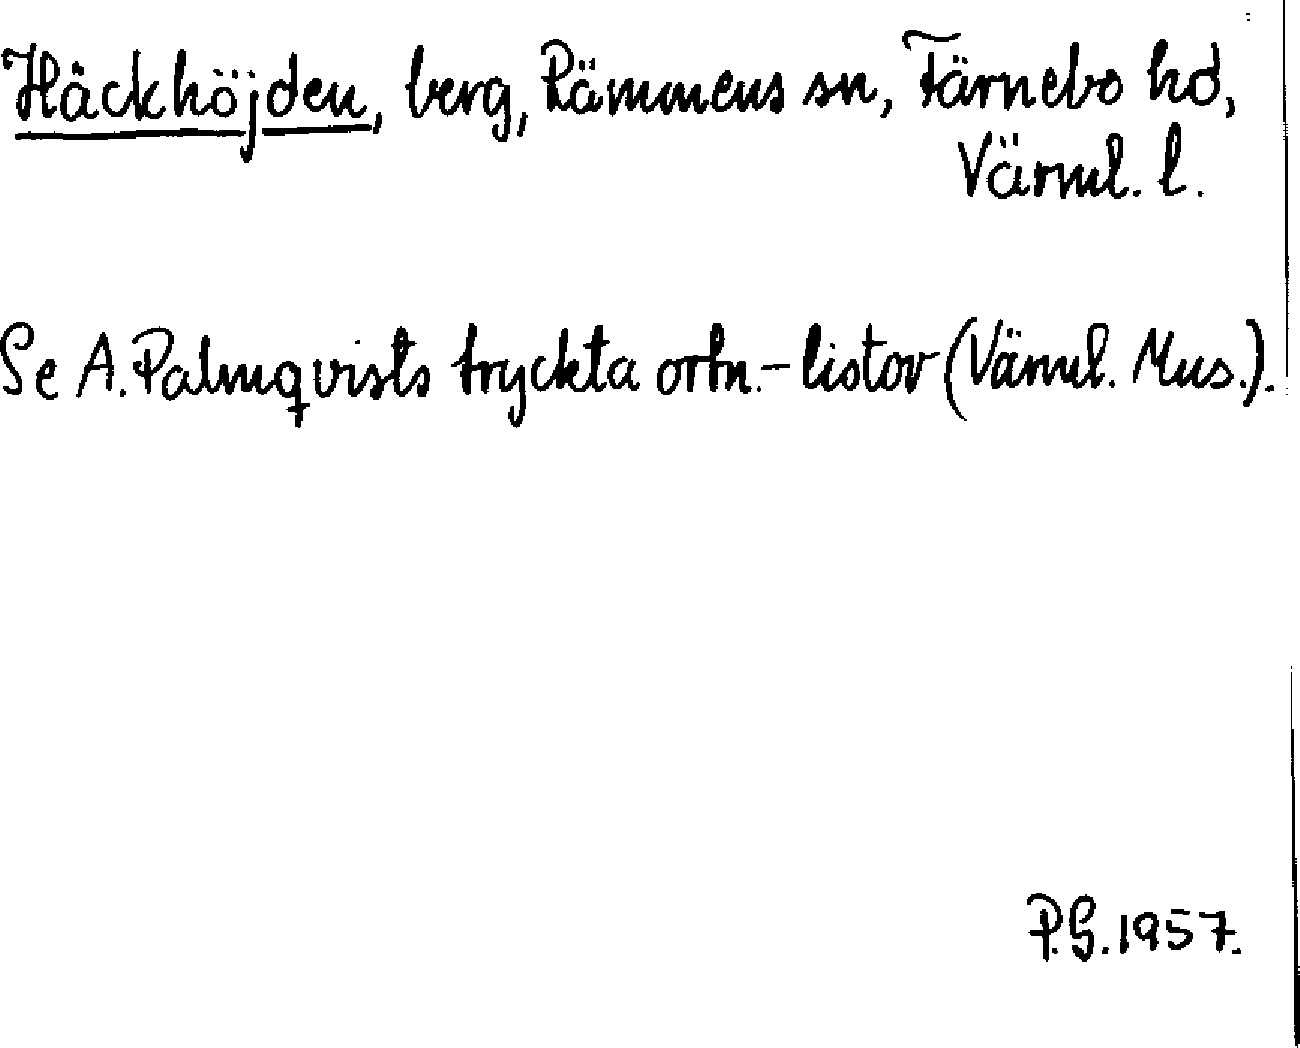 Häckhöjden, berg, Rämmens sn, Färnebo hd,
Värml. l.
Se A. Palmqvists tryckta ortn.-listor (Värml. Mus.).
P.G. 1957.